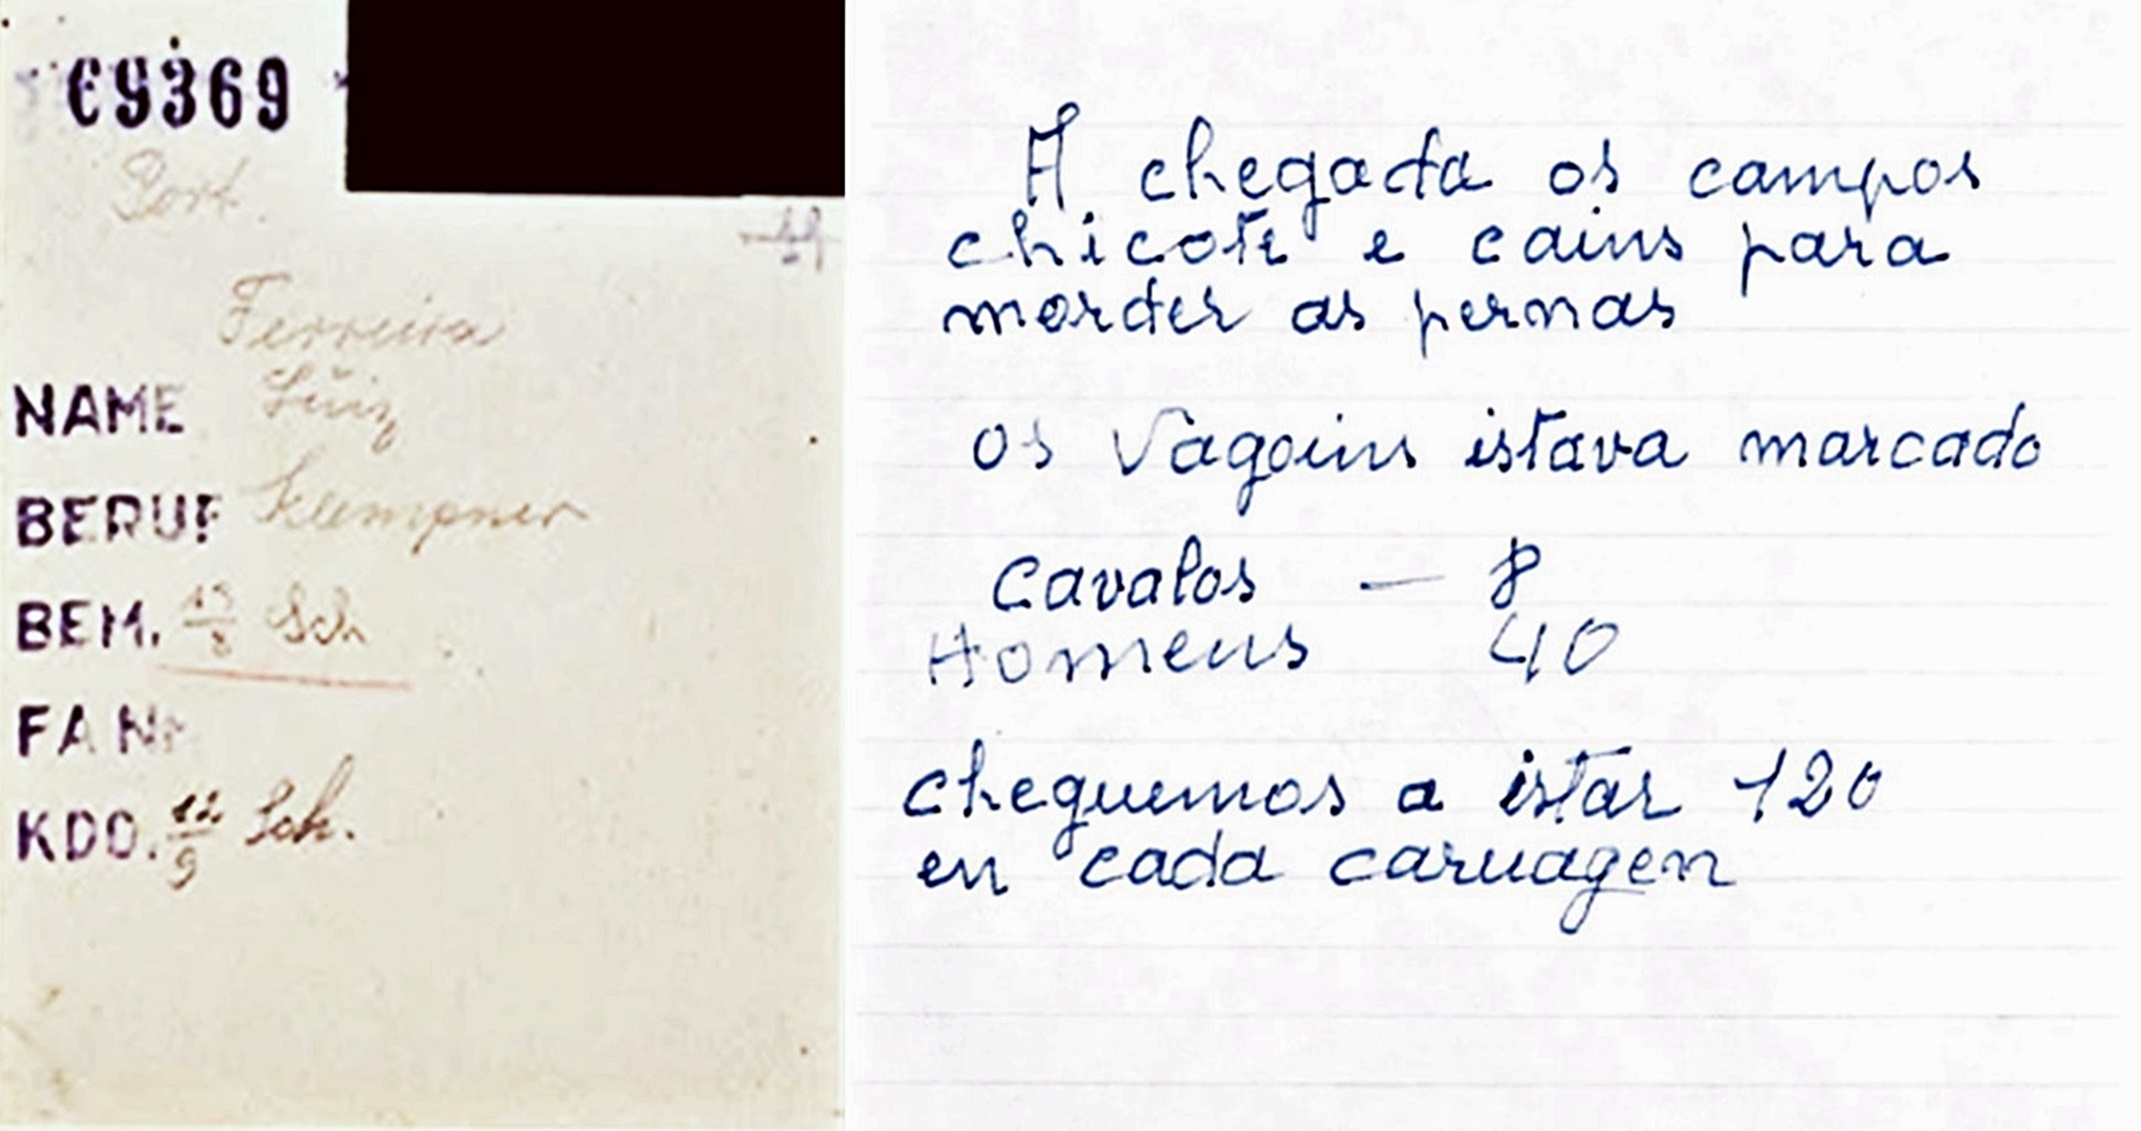 69369
Port.
Ferreira
NAME Luiz
BERUF Klempner
BEM. Sch
FA Nr
KDO. 12/9 Sch.
A chegada os campos
chicote e cains para
morder as pernas
os Vagoins istava marcado
Cavalos — 8
Homens 40
cheguemos a istar 120
en cada caruagen